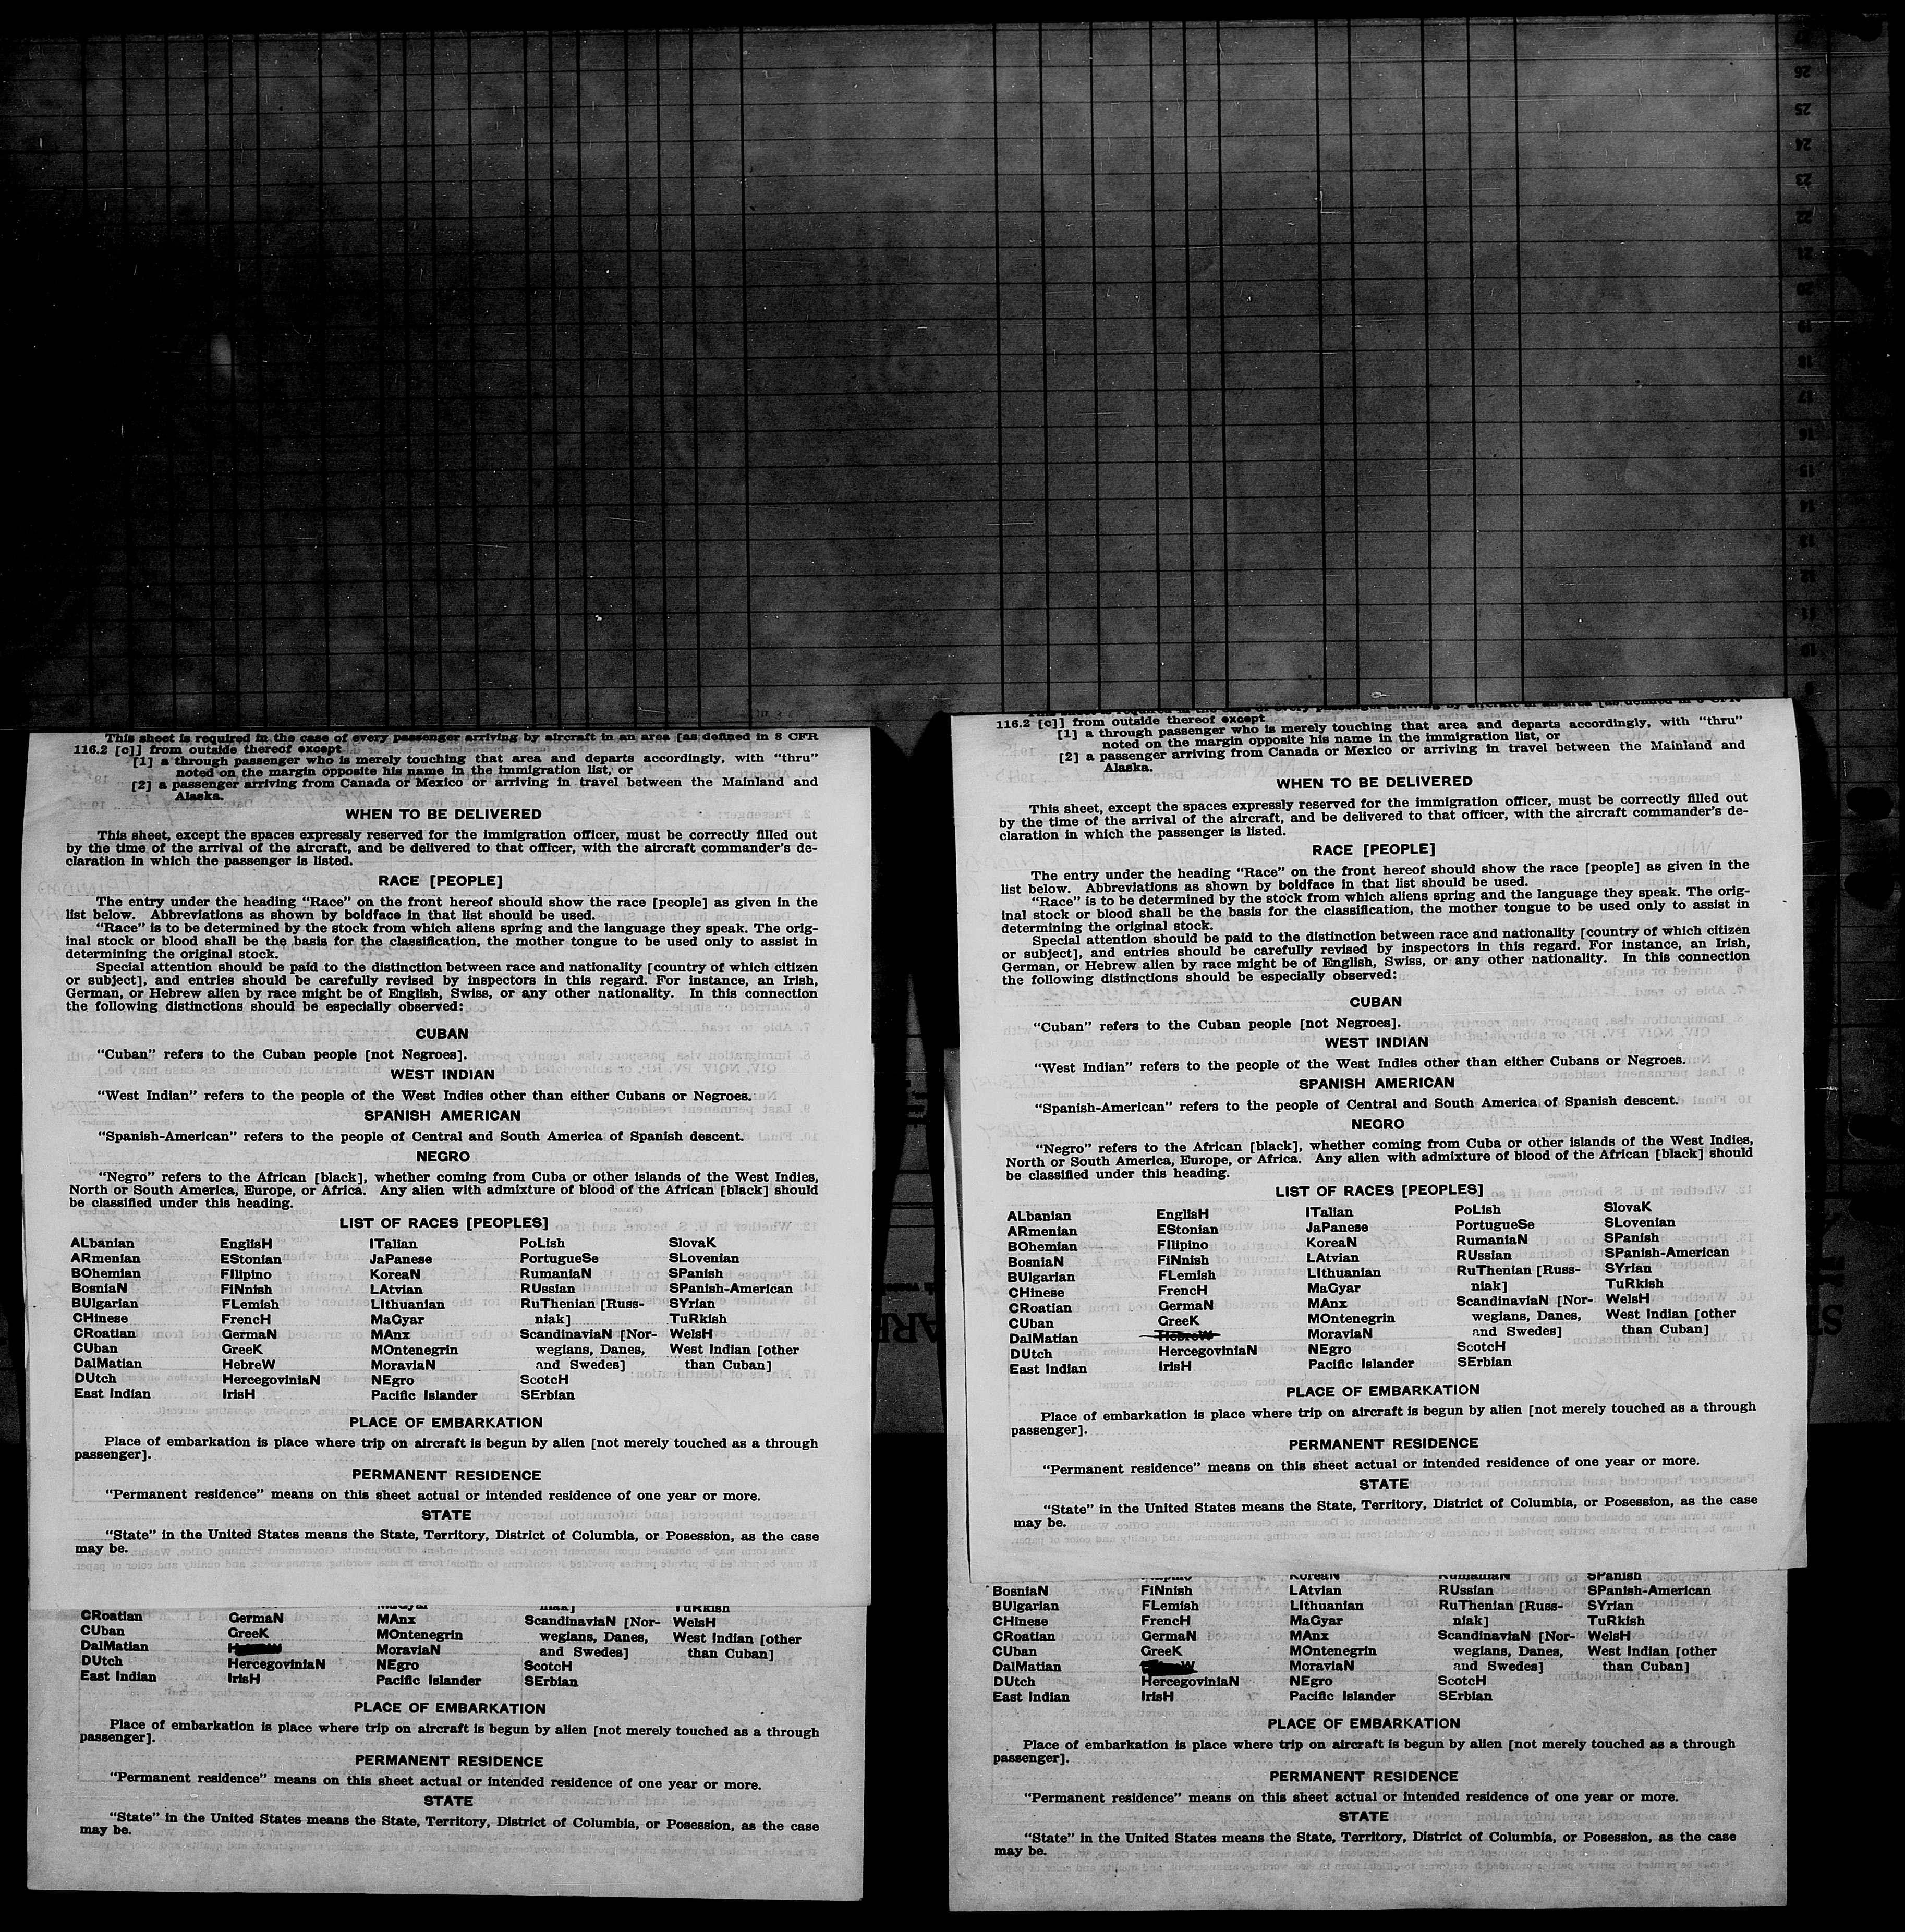 26
25
24
23
22
21
20
19
18
17
16
15
14
13
12
11
10
This sheet is required in the case of every passenger arriving by aircraft in an area [as defined in 8 CFR
116.2 [c]] from outside thereof except
[1] a through passenger who is merely touching that area and departs accordingly, with “thru”
noted on the margin opposite his name in the immigration list, or
[2] a passenger arriving from Canada or Mexico or arriving in travel between the Mainland and
Alaska.
WHEN TO BE DELIVERED
This sheet, except the spaces expressly reserved for the immigration officer, must be correctly filled out
by the time of the arrival of the aircraft, and be delivered to that officer, with the aircraft commander's de-
claration in which the passenger is listed.
RACE [PEOPLE]
The entry under the heading “Race” on the front hereof should show the race [people] as given in the
list below. Abbreviations as shown by boldface in that list should be used.
“Race” is to be determined by the stock from which aliens spring and the language they speak. The orig-
inal stock or blood shall be the basis for the classification, the mother tongue to be used only to assist in
determining the original stock.
Special attention should be paid to the distinction between race and nationality [country of which citizen
or subject], and entries should be carefully revised by inspectors in this regard. For instance, an Irish,
German, or Hebrew alien by race might be of English, Swiss, or any other nationality. In this connection
the following distinctions should be especially observed:
CUBAN
“Cuban” refers to the Cuban people [not Negroes].
WEST INDIAN
“West Indian” refers to the people of the West Indies other than either Cubans or Negroes.
SPANISH AMERICAN
“Spanish-American” refers to the people of Central and South America of Spanish descent.
NEGRO
“Negro” refers to the African [black], whether coming from Cuba or other islands of the West Indies,
North or South America, Europe, or Africa. Any alien with admixture of blood of the African [black] should
be classified under this heading.
LIST OF RACES [PEOPLES]
ALbanian EnglisH ITalian PoLish SlovaK
ARmenian EStonian JaPanese PortugueSe SLovenian
BOhemian FIlipino KoreaN RumaniaN SPanish
BosniaN FiNnish LAtvian RUssian SPanish-American
BUlgarian FLemish LIthuanian RuThenian [Russ- SYrian
CHinese FrencH MaGyar niak] TuRkish
CRoatian GermaN MAnx ScandinaviaN [Nor- WelsH
CUban GreeK MOntenegrin wegians, Danes, West Indian [other
DalMatian HebreW MoraviaN and Swedes] than Cuban]
DUtch HercegoviniaN NEgro ScotcH
East Indian IrisH Pacific Islander SErbian
PLACE OF EMBARKATION
Place of embarkation is place where trip on aircraft is begun by alien [not merely touched as a through
passenger].
PERMANENT RESIDENCE
“Permanent residence” means on this sheet actual or intended residence of one year or more.
STATE
“State” in the United States means the State, Territory, District of Columbia, or Posession, as the case
may be.
MaGyar niak] TuRkish
CRoatian GermaN MAnx ScandinaviaN [Nor- WelsH
CUban GreeK MOntenegrin wegians, Danes, West Indian [other
DalMatian MoraviaN and Swedes] than Cuban]
DUtch HercegoviniaN NEgro ScotcH
East Indian IrisH Pacific Islander SErbian
PLACE OF EMBARKATION
Place of embarkation is place where trip on aircraft is begun by alien [not merely touched as a through
passenger].
PERMANENT RESIDENCE
“Permanent residence” means on this sheet actual or intended residence of one year or more.
STATE
“State” in the United States means the State, Territory, District of Columbia, or Posession, as the case
may be.
116.2 [c]] from outside thereof except
[1] a through passenger who is merely touching that area and departs accordingly, with “thru”
noted on the margin opposite his name in the immigration list, or
[2] a passenger arriving from Canada or Mexico or arriving in travel between the Mainland and
Alaska.
WHEN TO BE DELIVERED
This sheet, except the spaces expressly reserved for the immigration officer, must be correctly filled out
by the time of the arrival of the aircraft, and be delivered to that officer, with the aircraft commander's de-
claration in which the passenger is listed.
RACE [PEOPLE]
The entry under the heading “Race” on the front hereof should show the race [people] as given in the
list below. Abbreviations as shown by boldface in that list should be used.
“Race” is to be determined by the stock from which aliens spring and the language they speak. The orig-
inal stock or blood shall be the basis for the classification, the mother tongue to be used only to assist in
determining the original stock.
Special attention should be paid to the distinction between race and nationality [country of which citizen
or subject], and entries should be carefully revised by inspectors in this regard. For instance, an Irish,
German, or Hebrew alien by race might be of English, Swiss, or any other nationality. In this connection
the following distinctions should be especially observed:
CUBAN
“Cuban” refers to the Cuban people [not Negroes].
WEST INDIAN
“West Indian” refers to the people of the West Indies other than either Cubans or Negroes.
SPANISH AMERICAN
“Spanish-American” refers to the people of Central and South America of Spanish descent.
NEGRO
“Negro” refers to the African [black], whether coming from Cuba or other islands of the West Indies,
North or South America, Europe, or Africa. Any alien with admixture of blood of the African [black] should
be classified under this heading.
LIST OF RACES [PEOPLES]
ALbanian EnglisH ITalian PoLish SlovaK
ARmenian EStonian JaPanese PortugueSe SLovenian
BOhemian FIlipino KoreaN RumaniaN SPanish
BosniaN FiNnish LAtvian RUssian SPanish-American
BUlgarian FLemish LIthuanian RuThenian [Russ- SYrian
CHinese FrencH MaGyar niak] TuRkish
CRoatian GermaN MAnx ScandinaviaN [Nor- WelsH
CUban GreeK MOntenegrin wegians, Danes, West Indian [other
DalMatian HebreW MoraviaN and Swedes] than Cuban]
DUtch HercegoviniaN NEgro ScotcH
East Indian IrisH Pacific Islander SErbian
PLACE OF EMBARKATION
Place of embarkation is place where trip on aircraft is begun by alien [not merely touched as a through
passenger].
PERMANENT RESIDENCE
“Permanent residence” means on this sheet actual or intended residence of one year or more.
STATE
“State” in the United States means the State, Territory, District of Columbia, or Posession, as the case
may be.
KoreaN RumaniaN SPanish
BosniaN FiNnish LAtvian RUssian SPanish-American
BUlgarian FLemish LIthuanian RuThenian [Russ- SYrian
CHinese FrencH MaGyar niak] TuRkish
CRoatian GermaN MAnx ScandinaviaN [Nor- WelsH
CUban GreeK MOntenegrin wegians, Danes, West Indian [other
DalMatian MoraviaN and Swedes] than Cuban]
DUtch HercegoviniaN NEgro ScotcH
East Indian IrisH Pacific Islander SErbian
PLACE OF EMBARKATION
Place of embarkation is place where trip on aircraft is begun by alien [not merely touched as a through
passenger].
PERMANENT RESIDENCE
“Permanent residence” means on this sheet actual or intended residence of one year or more.
STATE
“State” in the United States means the State, Territory, District of Columbia, or Posession, as the case
may be.